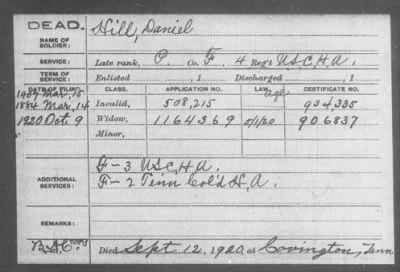 DEAD.
Hill, Daniel
NAME OF
SOLDIER:
SERVICE:
Late rank, P. Co. F, 4 Reg't U.S.C.H.A.
TERM OF
SERVICE:
Enlisted , 1 Discharged , 1
DATE OF FILING. CLASS. APPLICATION NO. LAW. CERTIFICATE NO.
Mar, 15 age
1884 Mar, 14 Invalid, 508,215 934,335
1920 Oct, 9 Widow, 1164369 5/1/20 906837
Minor,
ADDITIONAL
SERVICES:
F-3 U.S.C.H.A.
F-2 Tenn Col'd H.A.
REMARKS:
Died Sept 12, 1920, at Covington, Tenn